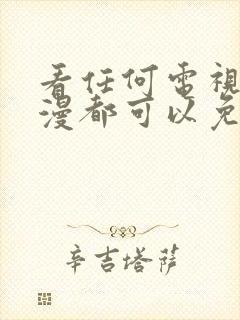 看任何電視
漫都可以免
辛吉塔萨